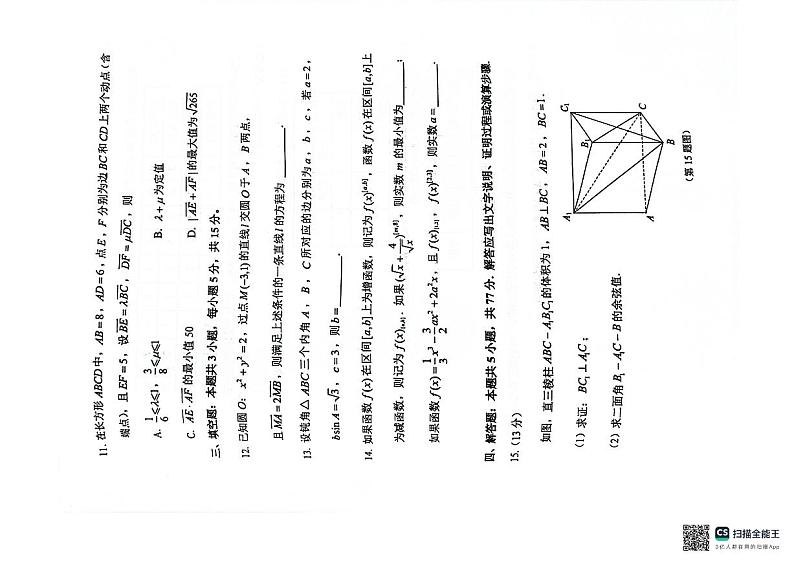 11. 在长方形 ABCD 中，AB=8，AD=6，点 E，F 分别为边 BC 和 CD 上两个动点（含
端点），且 EF=5，设 $\overrightarrow{BE}=\lambda\overrightarrow{BC}$，$\overrightarrow{DF}=\mu\overrightarrow{DC}$，则
A. $\frac{1}{6}\leqslant\lambda\leqslant1$，$\frac{3}{8}\leqslant\mu\leqslant1$ B. λ+μ 为定值
C. $\overrightarrow{AE}\cdot\overrightarrow{AF}$ 的最小值 50 D. $|\overrightarrow{AE}+\overrightarrow{AF}|$ 的最大值为 $\sqrt{265}$
三、填空题：本题共 3 小题，每小题 5 分，共 15 分。
12. 已知圆 O：$x^2+y^2=2$，过点 M(-3,1) 的直线 l 交圆 O 于 A，B 两点，
且 $\overrightarrow{MA}=2\overrightarrow{MB}$，则满足上述条件的一条直线 l 的方程为 ______.
13. 设钝角△ABC 三个内角 A，B，C 所对应的边分别为 a，b，c，若 a=2，
$b\sin A=\sqrt{3}$，c=3，则 b=______.
14. 如果函数 f(x) 在区间 [a,b] 上为增函数，则记为 $f(x)^{[a,b]}$，函数 f(x) 在区间 [a,b] 上
为减函数，则记为 $f(x)_{[a,b]}$. 如果 $(\sqrt{x}+\frac{4}{\sqrt{x}})^{[m,8]}$，则实数 m 的最小值为______；
如果函数 $f(x)=\frac{1}{3}x^3-\frac{3}{2}ax^2+2a^2x$，且 $f(x)_{[1,2]}$，$f(x)^{[2,3]}$，则实数 a=______.
四、解答题：本题共 5 小题，共 77 分. 解答应写出文字说明、证明过程或演算步骤.
15.（13 分）
如图，直三棱柱 $ABC-A_1B_1C_1$ 的体积为 1，AB⊥BC，AB=2，BC=1.
（1）求证：$BC_1\perp A_1C$；
（2）求二面角 $B_1-A_1C-B$ 的余弦值.
A₁
B₁
C₁
A
B
C
（第 15 题图）
CS 扫描全能王
3亿人都在用的扫描App